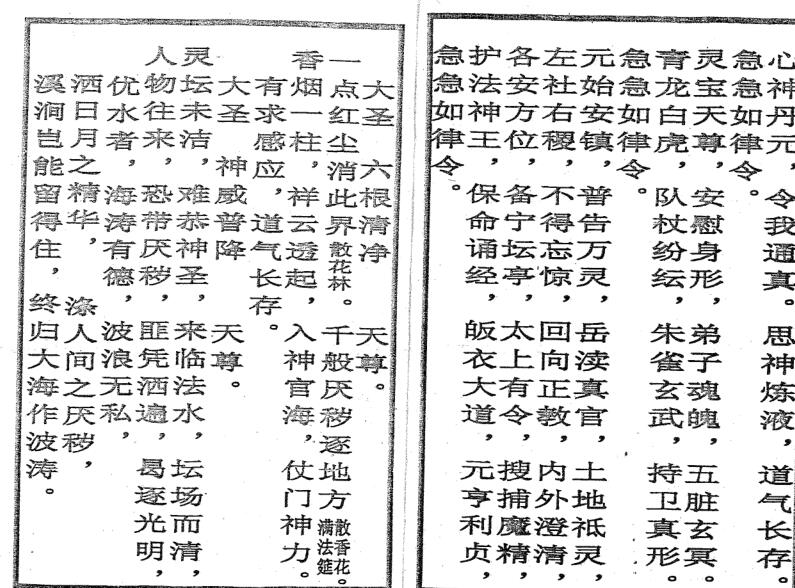 心神丹元，令我通真。思神炼液，道气长存。
急急如律令。
灵宝天尊，安慰身形，弟子魂魄，五脏玄冥。
青龙白虎，队杖纷纭，朱雀玄武，持卫真形。
急急如律令。
元始安镇，普告万灵，岳渎真官，土地祇灵，
左社右稷，不得忘惊，回向正教，内外澄清，
各安方位，备宁坛亭，太上有令，搜捕魔精，
护法神王，保命诵经，皈衣大道，元亨利贞，
急急如律令。
大圣 六根清净 天尊。
一点红尘消此界散花林。千般厌秽逐地方散香花满法筵。
香烟一柱，祥云透起，入神官海，仗门神力。
有求感应，道气长存。
大圣 神威普降 天尊。
灵坛未洁，难恭神圣，来临法水，坛场而清，
人物往来，恐带厌秽，匪凭洒遍，曷逐光明，
优水者，海涛有德，波浪无私，
洒日月之精华，涤人间之厌秽，
溪涧岂能留得住，终归大海作波涛。